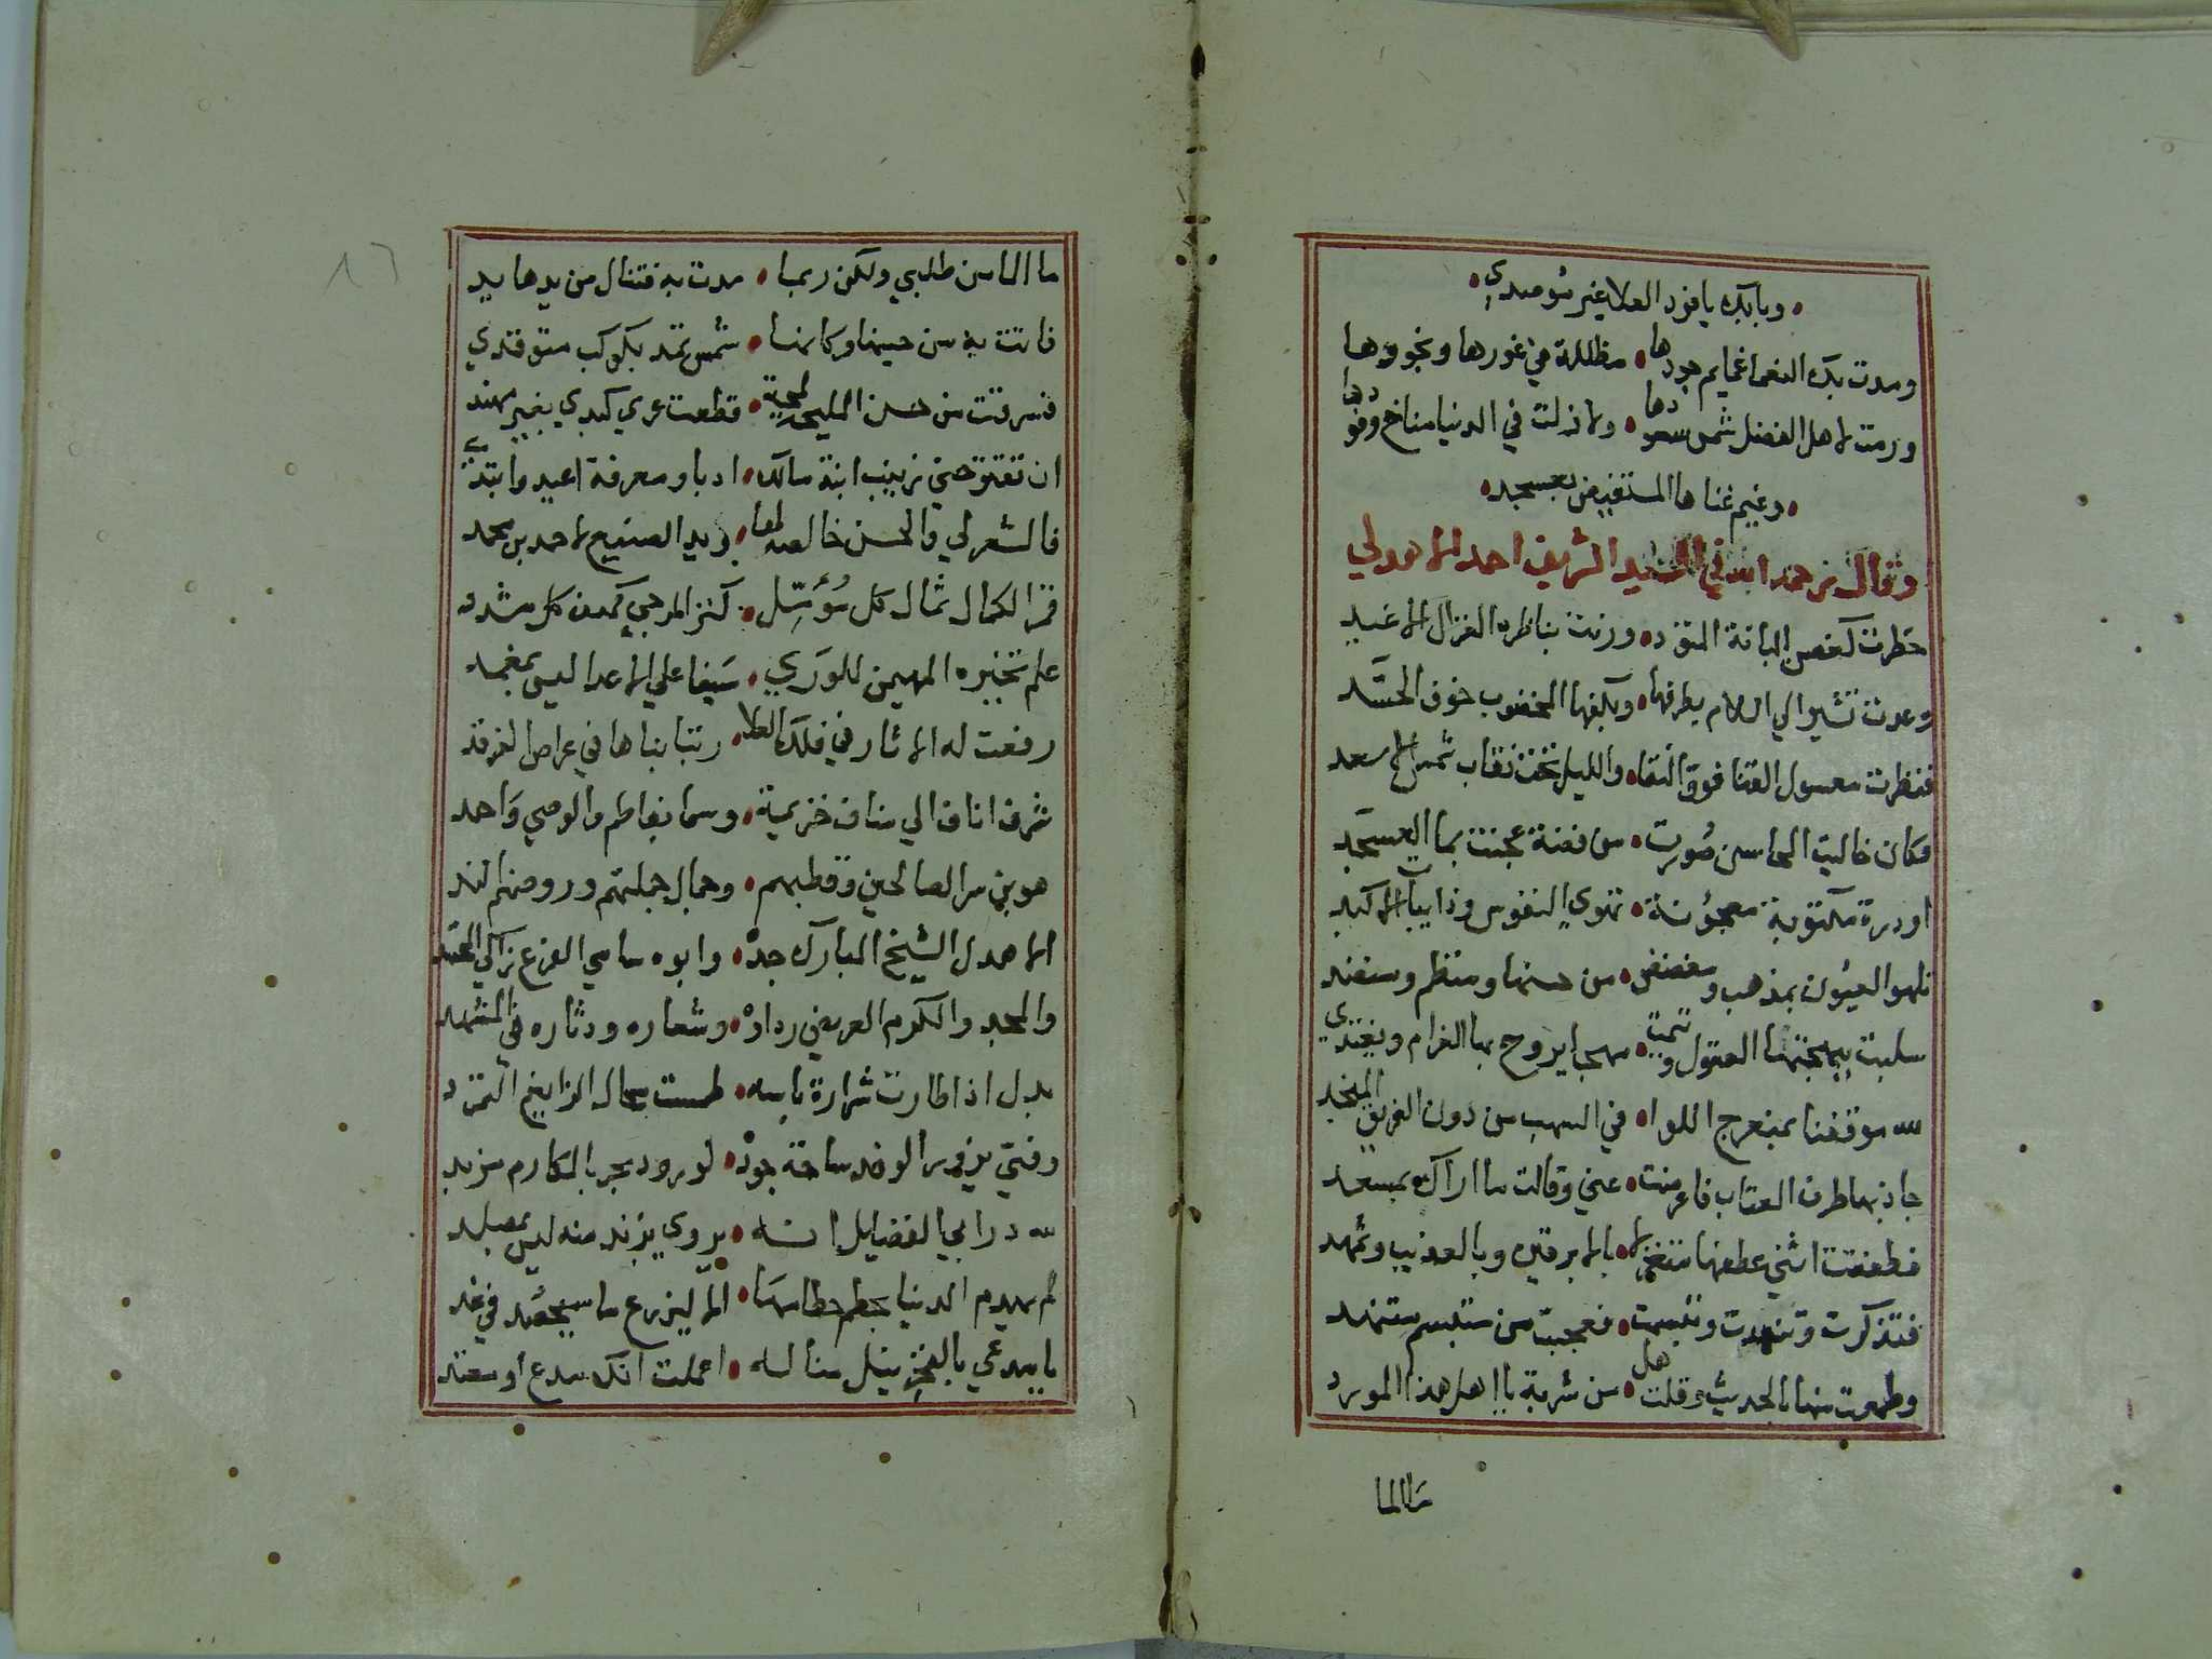 وبابك يا فرد العلا غير موصدي
ومدت بك النعما غمايم جودها • مظللة في غورها ونجودها
ودمت لاهل الفضل شمس سعودها • ولا زلت في الدنيا مناخ وفودها
وغيم غناها المستفيض بعسجد
وقال رحمه الله في السيد الشريف احمد الاهدلي
خطرت كغصن البانة المتود • ورنت بناظره الغزال الاغيد
وعدت تشير الي السلام بطرفها • وبكفها المخضوب خوف الحسَّد
فنظرت معسول القنا فوق النقا • والليل تحت نقاب شمس الاسعد
فكان خاليت المحاسن صُورت • من فضة عجنت بما العسجد
او درة مكنوبة معجونة • تهوي النفوس وذايبات الاكبد
تلهوا العيون بمذهب ومفضض • من حسنها ومنظم ومنضد
سلبت ببهجتها العقول وتيمت • مهجا يروح بها الغرام ويغتدي
لله موقفنا بمنعرج اللوا • في السهب من دون الفريق المنجد
جاذبتها طرف العتاب فاعرضت • عني وقالت ما اراك بمسعد
فطفقت اثني عطفها متغزلا • بالابرقين وبالعذيب وثهمد
فتذكرت وتنهدت وتبسمت • فعجبت من متبسم متنهد
وطمعت منها بالحديث وقلت هل • من شربة يا اهل هذا المورد
ما الما
ما الما من طلبي ولكن ربما • مدت به فتنال من يدها يد
فاتت به من حينها وكانما • شمس تمد بكوكب متوقدي
فسرقت من حسن المليحة لمحة • قطعت عري كبدي بغير مهند
ان تقترحني زينب ابنة مالك • ادبا ومعرفة اعيد وابتدي
فالشعر لي والحسن خالصه لها • ويد الصنيع لاحمد بن محمد
قمر الكمال ثمال كل مُؤَمِّل • كنز المرجي كهف كل مشرد
علم تخيره المهيمن للوري • سَيفا علي الاعدا ليس بمغمد
رفعت له الاثار في فلك العلا • رتبا بناها في عراص الفرقد
شرف اناف الي مناف خزيمية • وسما بفاطم والوصي واحمد
هو بن سر الصالحين وقطبهم • وجمال جملتهم وروضهم الند
الاهدل الشيخ المبارك جده • وابوه سامي الفرع زاكي المحتد
والمجد والكرم العريض رداوه • وشعاره ودثاره في المشهد
بدل اذا طارت شرارة باسه • طمست بحال الزايغ المتمرد
وفتي يزور الوفد ساحة جوده • لورود بحر بالمكارم مزبد
لله در ابي الفضايل انه • يروي بزند منه ليس بمصلد
لم يهدم الدنيا بحطم حطامها • الا ليزرع ما سيحصد في غد
يا مدعي بالفخر نيل مناله • اعملت انك مدع او معتد
١٦